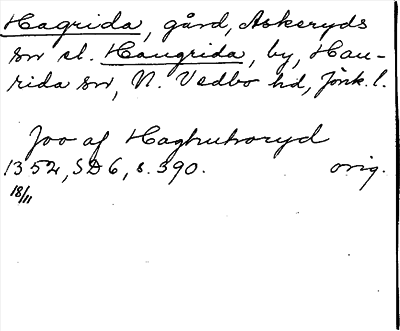 Hagrida, gård, Askeryds
sn el. Haugrida, by, Hau-
rida sn, N. Vedbo hd, Jönk. l.
Joo af Haghuhoryd
1352, SD 6, s. 390. orig.
18/11